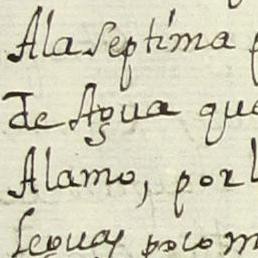 Ala Septima
de Agua que
Alamo, por l
leguas poco m